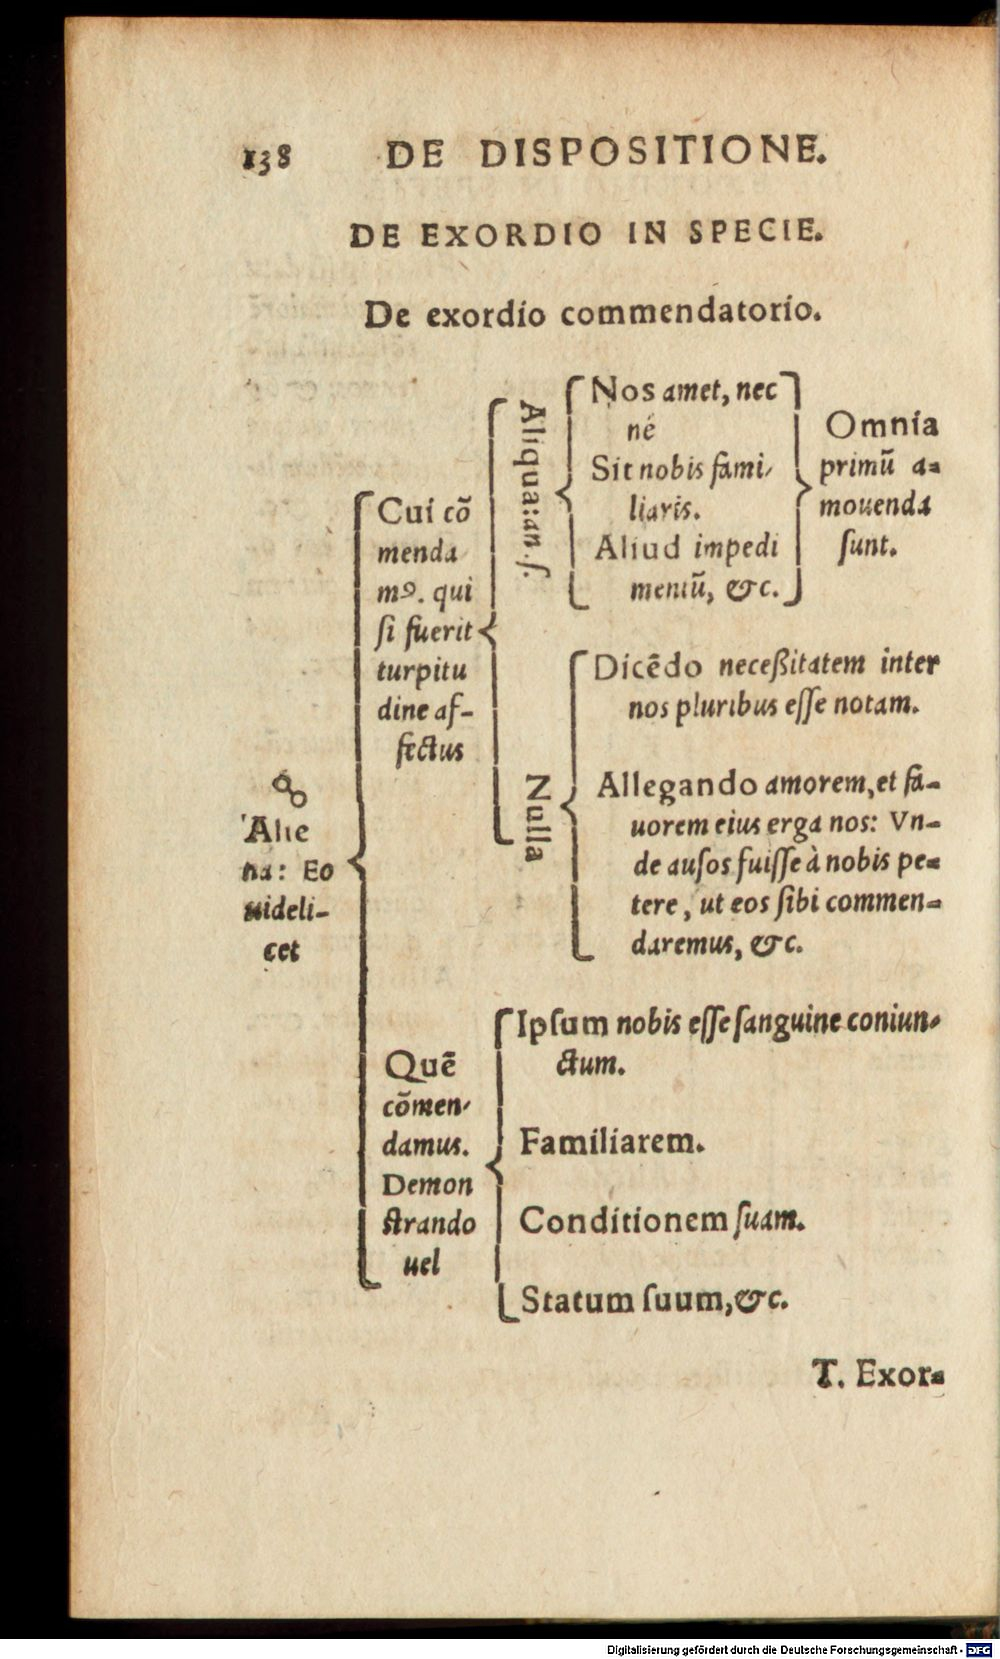 138 DE DISPOSITIONE.
DE EXORDIO IN SPECIE.
De exordio commendatorio.
Alie
na: Eo
uideli-
cet
Cui cō
menda
mꝰ. qui
si fuerit
turpitu
dine af-
fectus
Aliqua: an .s.
Nos amet, nec
né
Sit nobis fami-
liaris.
Aliud impedi
mentū, &c.
Omnia
primū a-
mouenda
sunt.
Nulla
Dicēdo neceßitatem inter
nos pluribus esse notam.
Allegando amorem, et fa-
uorem eius erga nos: Vn-
de ausos fuisse à nobis pe-
tere, ut eos sibi commen-
daremus, &c.
Quē
cōmen-
damus.
Demon
strando
uel
Ipsum nobis esse sanguine coniun-
ctum.
Familiarem.
Conditionem suam.
Statum suum, &c.
T. Exor-
Digitalisierung gefördert durch die Deutsche Forschungsgemeinschaft - DFG